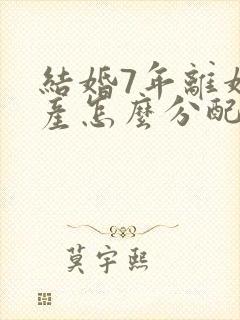 結婚7年離
產怎麼分配
莫宇熙